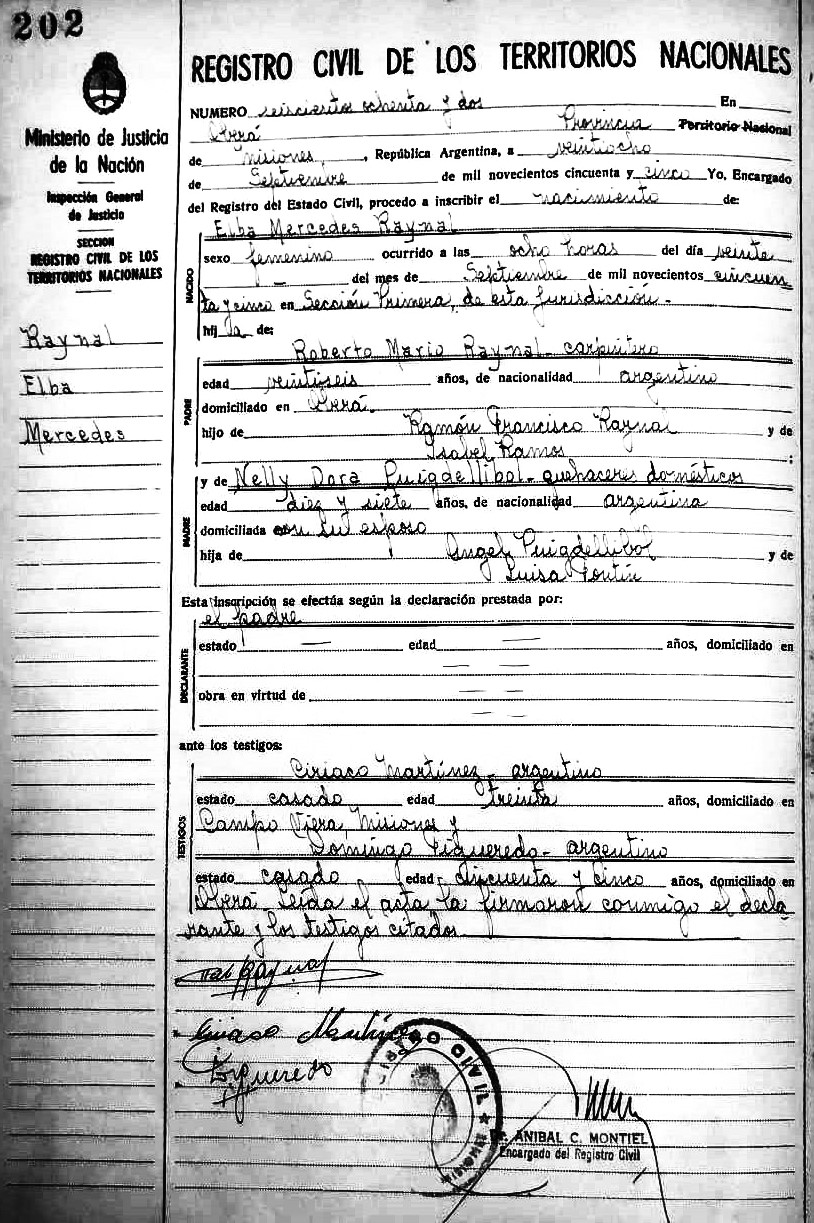 202
Ministerio de Justicia
de la Nación
Inspección General
de Justicia
SECCION
REGISTRO CIVIL DE LOS
TERRITORIOS NACIONALES
Raynal
Elba
Mercedes
REGISTRO CIVIL DE LOS TERRITORIOS NACIONALES
NUMERO seiscientos ochenta y dos En
Oberá Provincia Territorio Nacional
de Misiones, , República Argentina, a veintiocho
de Septiembre de mil novecientos cincuenta y cinco Yo, Encargado
del Registro del Estado Civil, procedo a inscribir el nacimiento de:
NACIDO
Elba Mercedes Raynal
sexo femenino ocurrido a las ocho horas del día veinte
del mes de Septiembre de mil novecientos cincuen
ta y cinco en Sección Primera, de esta jurisdicción.-
hij a de:
PADRE
Roberto Mario Raynal - carpintero
edad veintiseis años, de nacionalidad argentino
domiciliado en Oberá.
hijo de Ramón Francisco Raynal y de
Isabel Ramos ;
MADRE
y de Nelly Dora Puigdellibol - quehaceres domésticos
edad diez y siete años, de nacionalidad argentina
domiciliada con su esposo
hija de Angel Puigdellibol y de
Luisa Fontín
Esta inscripción se efectúa según la declaración prestada por:
el padre
DECLARANTE
estado — edad — años, domiciliado en
— —
obra en virtud de — —
— —
ante los testigos:
TESTIGOS
Ciriaco Martínez - argentino
estado casado edad treinta años, domiciliado en
Campo Viera, Misiones y
Domingo Figueredo - argentino
estado casado edad cincuenta y cinco años, domiciliado en
Oberá Leída el acta la firmaron conmigo el decla
rante y los testigos citados
Raynal
Ciriaco Martínez
Figueredo
REGISTRO CIVIL
ANIBAL C. MONTIEL
Encargado del Registro Civil